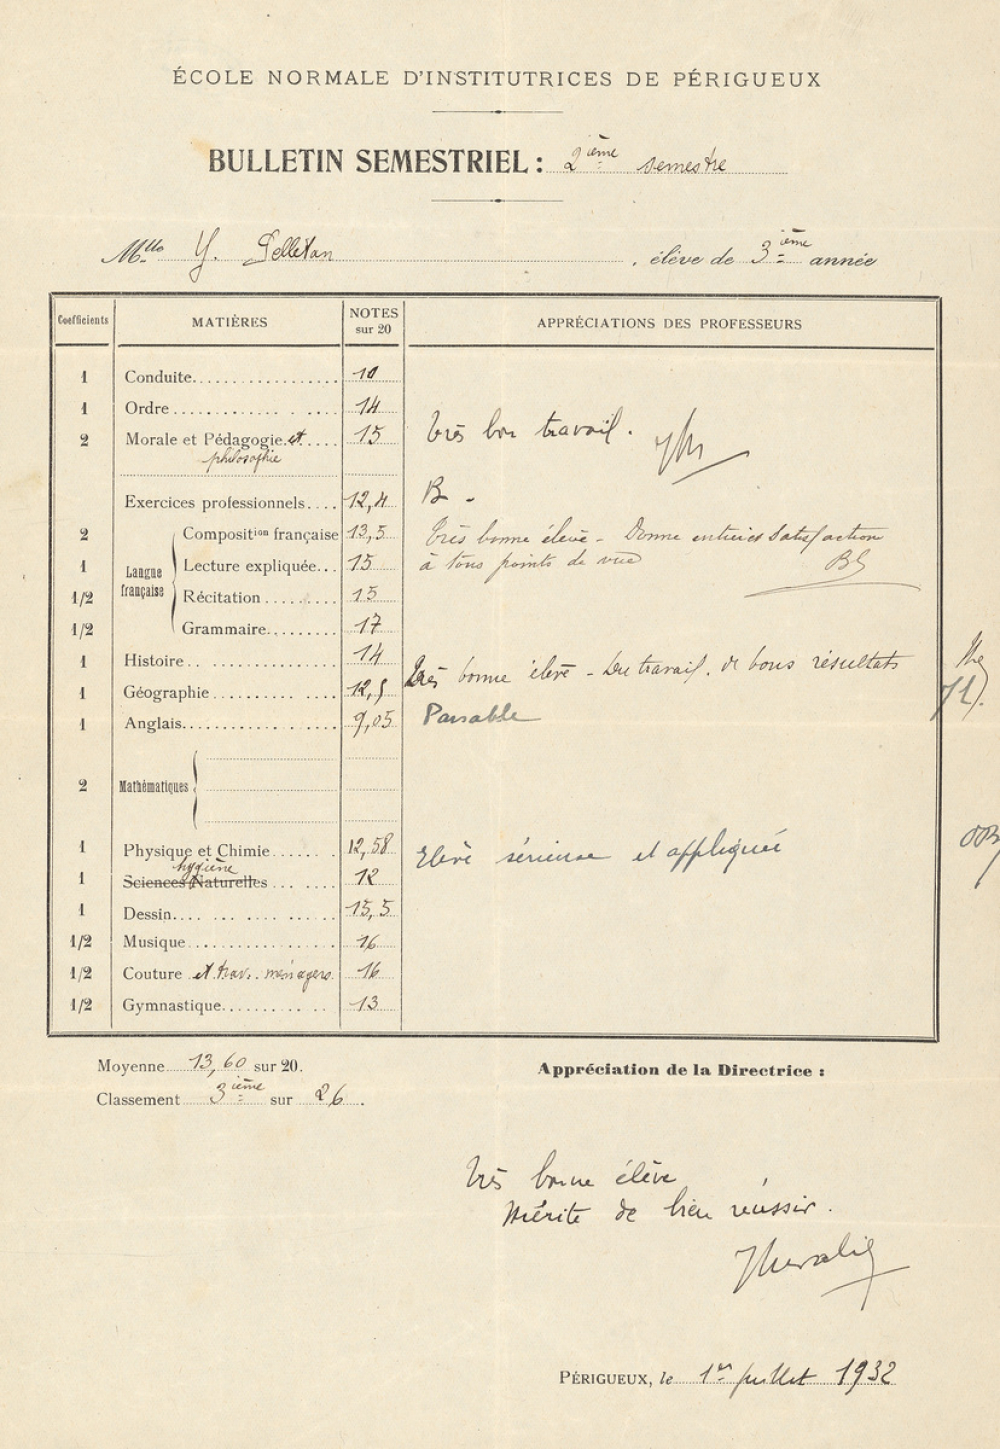 ÉCOLE NORMALE D'INSTITUTRICES DE PÉRIGUEUX
BULLETIN SEMESTRIEL : 2ième semestre
Mlle Y. Pelletan, élève de 3ième année
Coefficients MATIÈRES NOTES sur 20 APPRÉCIATIONS DES PROFESSEURS
1 Conduite 10
1 Ordre 14
2 Morale et Pédagogie et 15 Très bon travail.
philosophie
Exercices professionnels 12,4 B -
Langue française
2 Composition française 13,5 Très bonne élève - Donne entière satisfaction
1 Lecture expliquée 15 à tous points de vue
1/2 Récitation 15
1/2 Grammaire 17
1 Histoire 14 Très bonne élève - Du travail, de bons résultats
1 Géographie 12,5
1 Anglais 9,05 Passable
2 Mathématiques
1 Physique et Chimie 12,58 Elève sérieuse et appliquée
hygiène
1 Sciences Naturelles 12
1 Dessin 15,5
1/2 Musique 16
1/2 Couture et trav. ménagers 16
1/2 Gymnastique 13
Moyenne 13,60 sur 20.
Classement 3ième sur 26.
Appréciation de la Directrice :
Très bonne élève
Mérite de bien réussir.
PÉRIGUEUX, le 1er juillet 1932